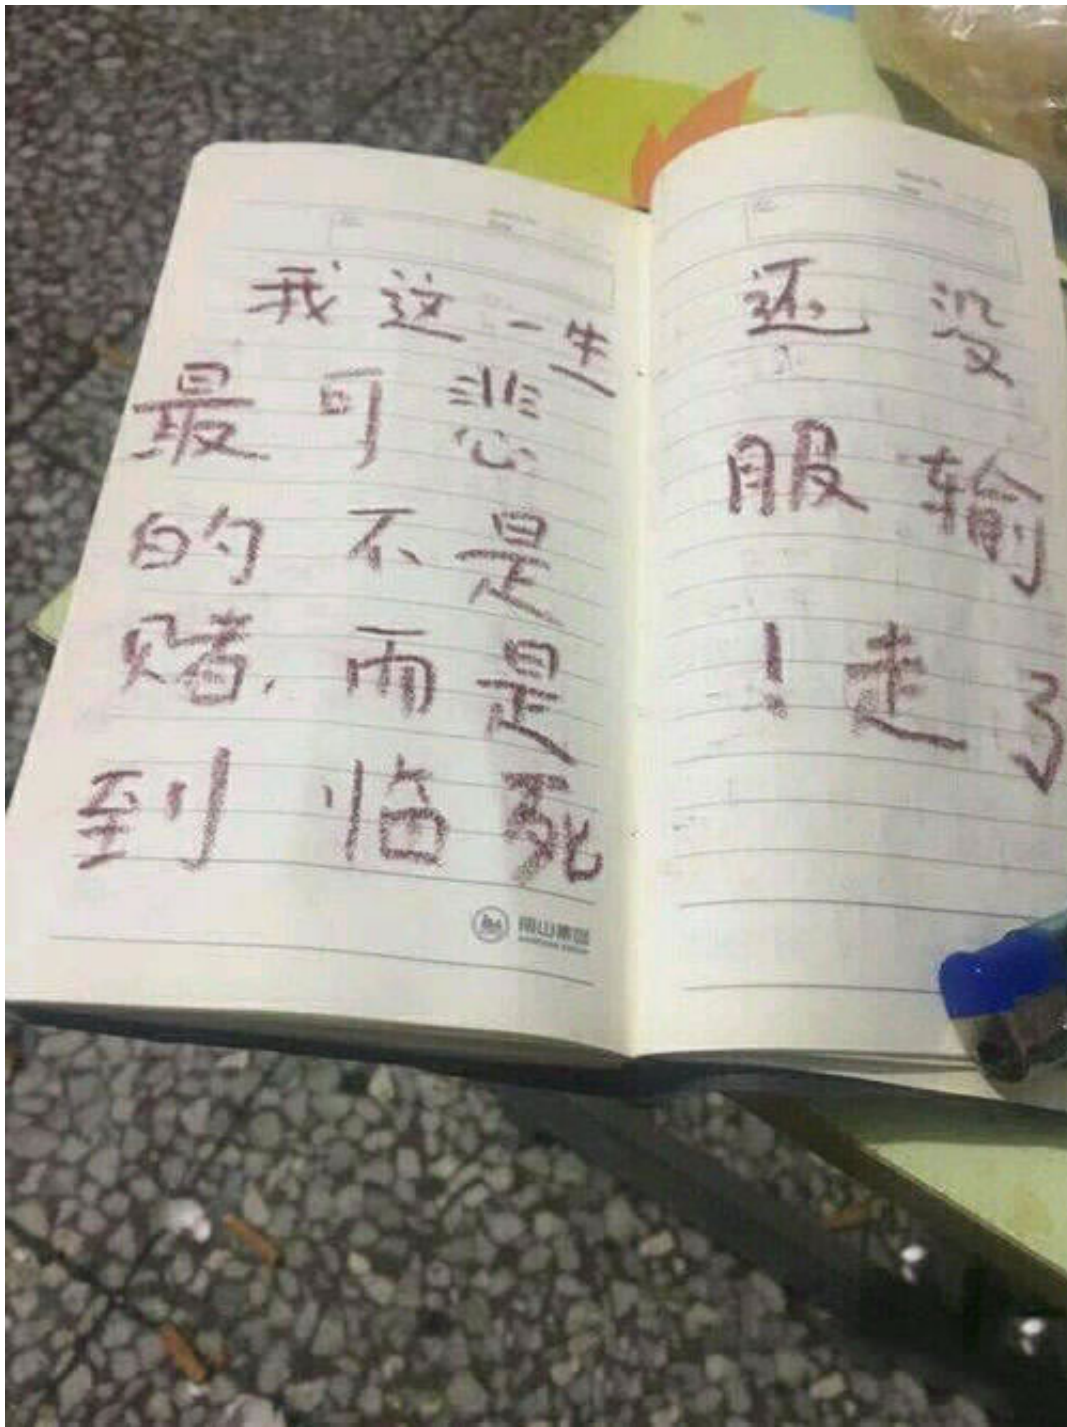 我这一生
最可悲
的不是
赌，而是
到临死
南山集团
还没
服输
！走了